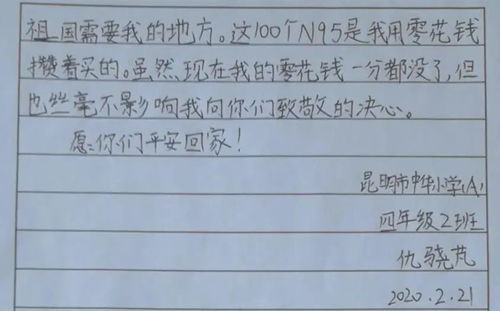 祖国需要我的地方。这100个N95是我用零花钱
攒着买的。虽然现在我的零花钱一分都没了,但
也丝毫不影响我向你们致敬的决心。
愿你们平安回家!
昆明市中华小学(A)
四年级2班
仇骁芃
2020.2.21